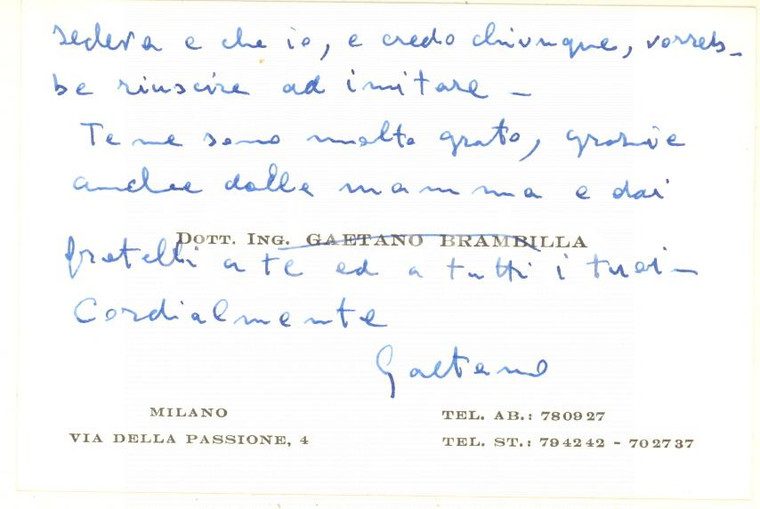 sedeva e che io, e credo chiunque, vorreb-
be riuscire ad imitare -
Te ne sono molto grato, grazie
anche dalla mamma e dai
DOTT. ING. GAETANO BRAMBILLA
fratelli a te ed a tutti i tuoi -
Cordialmente
Gaetano
MILANO
VIA DELLA PASSIONE, 4
TEL. AB.: 780927
TEL. ST.: 794242 - 702737